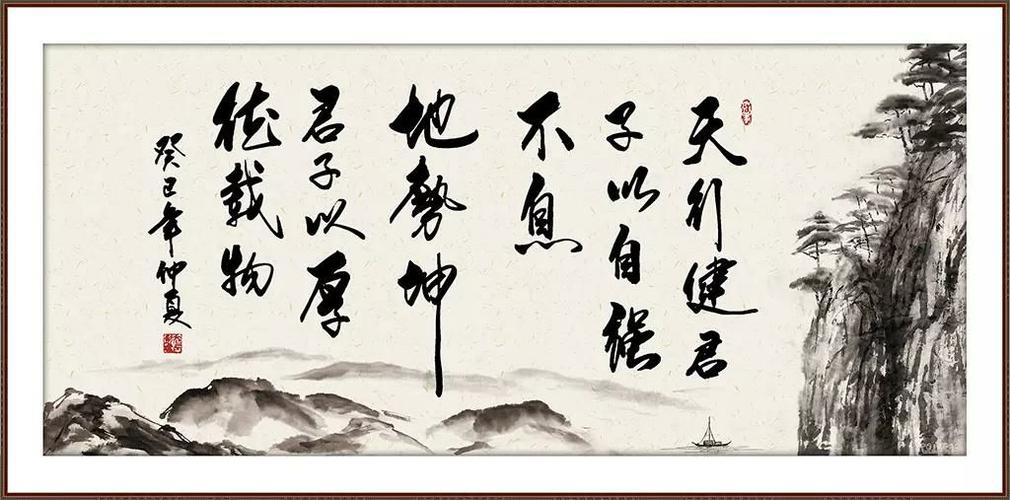 天行健君
子以自强
不息
地势坤
君子以厚
德载物
癸巳年仲夏